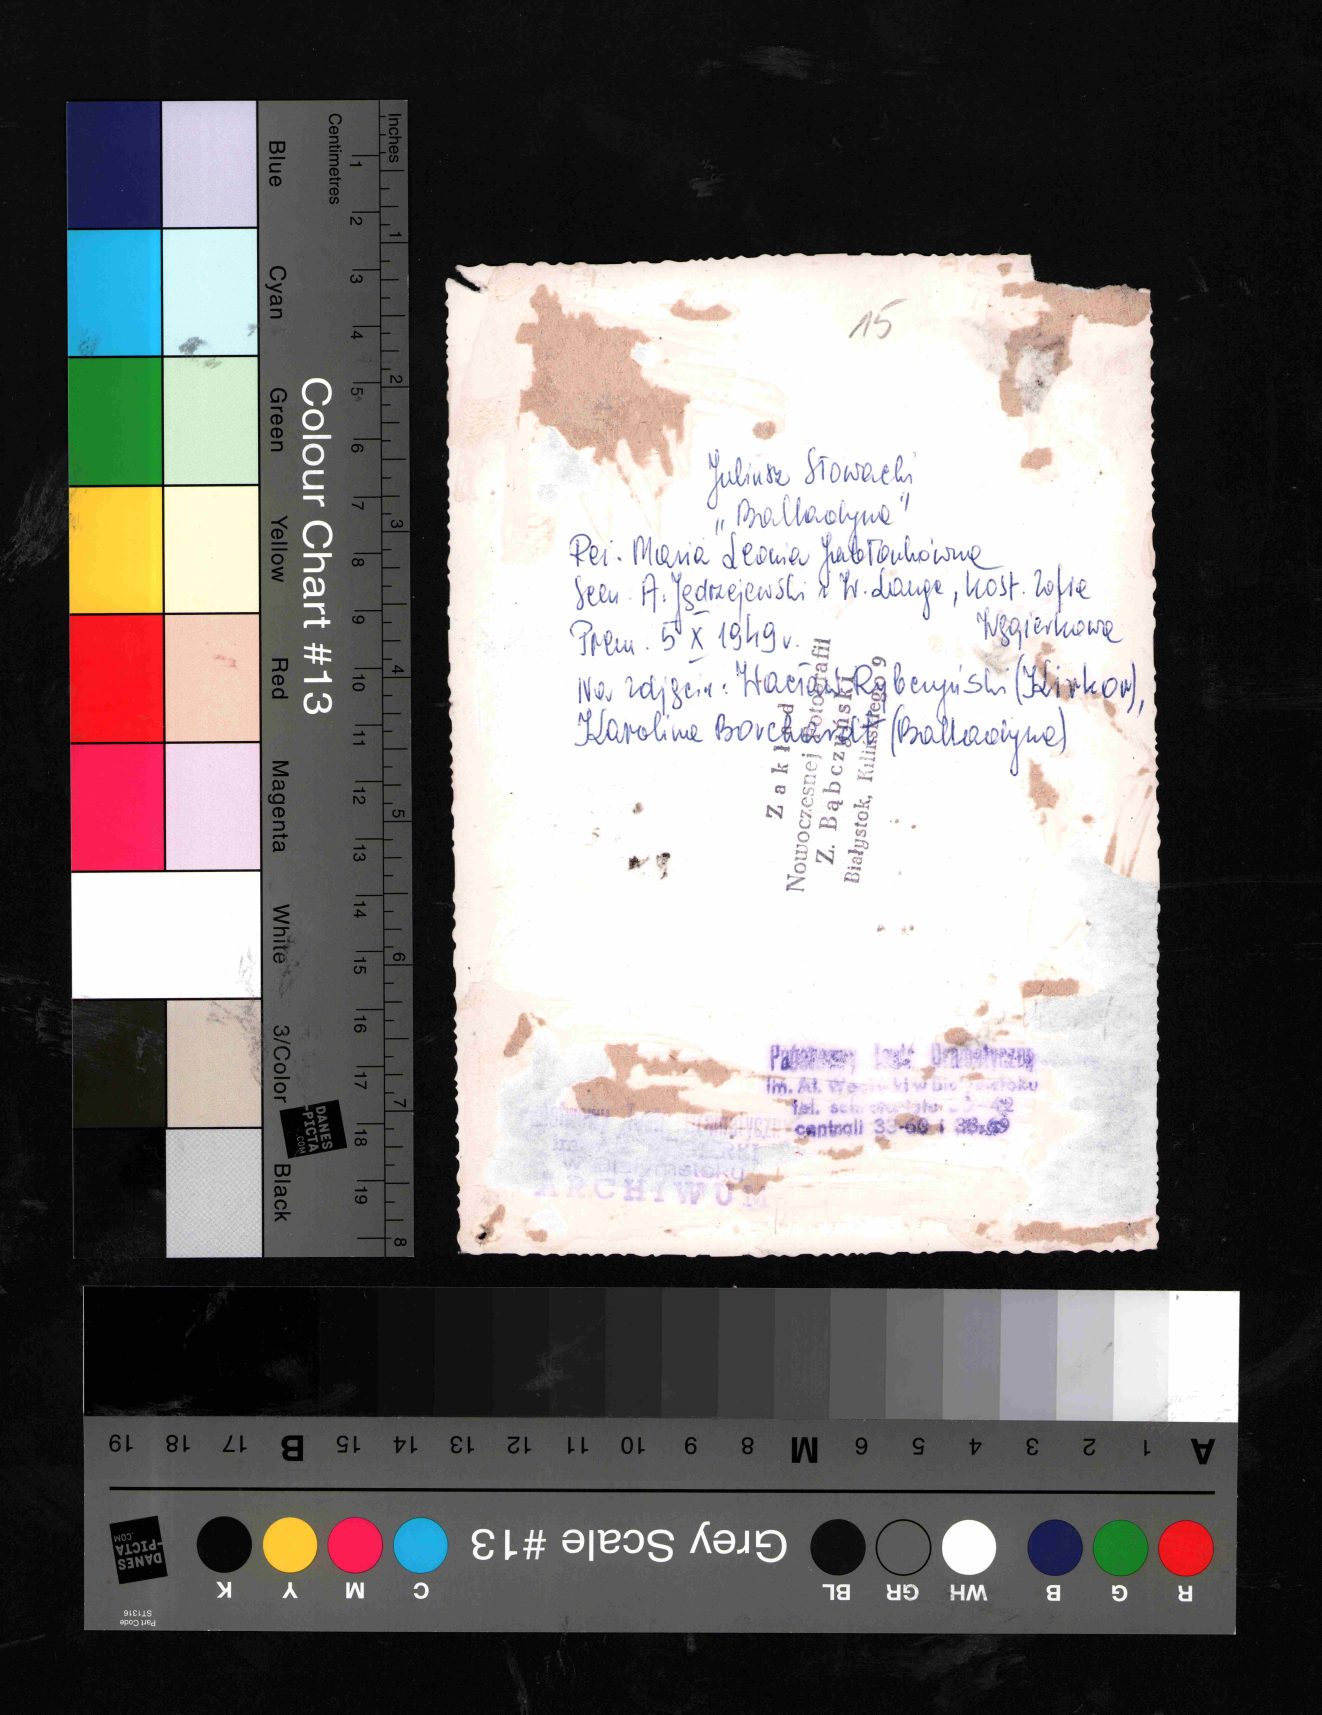 15
Juliusz Słowacki
„Balladyna"
Reż. Maria Leonia Jabłonkówna
Scen. A. Jędrzejewski i W. Lange, kost. Zofia
Węgierkowa
Prem. 5 X 1949 r.
Na zdjęciu: Wacław Rybczyński (Kirkor),
Karolina Borchardt (Balladyna)
Zakład
Nowoczesnej Fotografii
Z. Bąbczyński
Białystok, Kilińskiego 9
Dramatyczny
im. Al. Węgierki w Białymstoku
tel.
centrali 33-60 i
w Białymstoku
ARCHIWUM
Colour Chart #13
Blue
Cyan
Green
Yellow
Red
Magenta
White
3/Color
Black
Centimetres
1 2 3 4 5 6 7 8 9 10 11 12 13 14 15 16 17 18 19
Inches
1 2 3 4 5 6 7 8
DANES
-PICTA
.COM
A 1 2 3 4 5 6 M 8 9 10 11 12 13 14 15 B 17 18 19
Grey Scale #13
R G B WH GR BL C M Y K
DANES
-PICTA
.COM
Part Code
ST1316